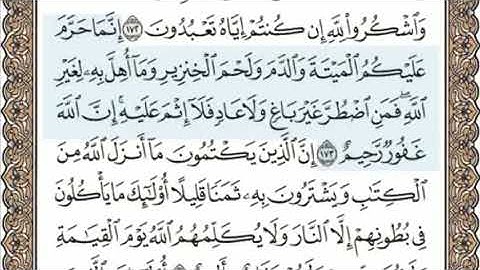 وَٱشْكُرُوا۟ لِلَّهِ إِن كُنتُمْ إِيَّاهُ تَعْبُدُونَ ١٧٢ إِنَّمَا حَرَّمَ
عَلَيْكُمُ ٱلْمَيْتَةَ وَٱلدَّمَ وَلَحْمَ ٱلْخِنزِيرِ وَمَآ أُهِلَّ بِهِۦ لِغَيْرِ
ٱللَّهِ ۖ فَمَنِ ٱضْطُرَّ غَيْرَ بَاغٍ وَلَا عَادٍ فَلَآ إِثْمَ عَلَيْهِ ۚ إِنَّ ٱللَّهَ
غَفُورٌ رَّحِيمٌ ١٧٣ إِنَّ ٱلَّذِينَ يَكْتُمُونَ مَآ أَنزَلَ ٱللَّهُ مِنَ
ٱلْكِتَٰبِ وَيَشْتَرُونَ بِهِۦ ثَمَنًا قَلِيلًا أُو۟لَٰٓئِكَ مَا يَأْكُلُونَ
فِى بُطُونِهِمْ إِلَّا ٱلنَّارَ وَلَا يُكَلِّمُهُمُ ٱللَّهُ يَوْمَ ٱلْقِيَٰمَةِ